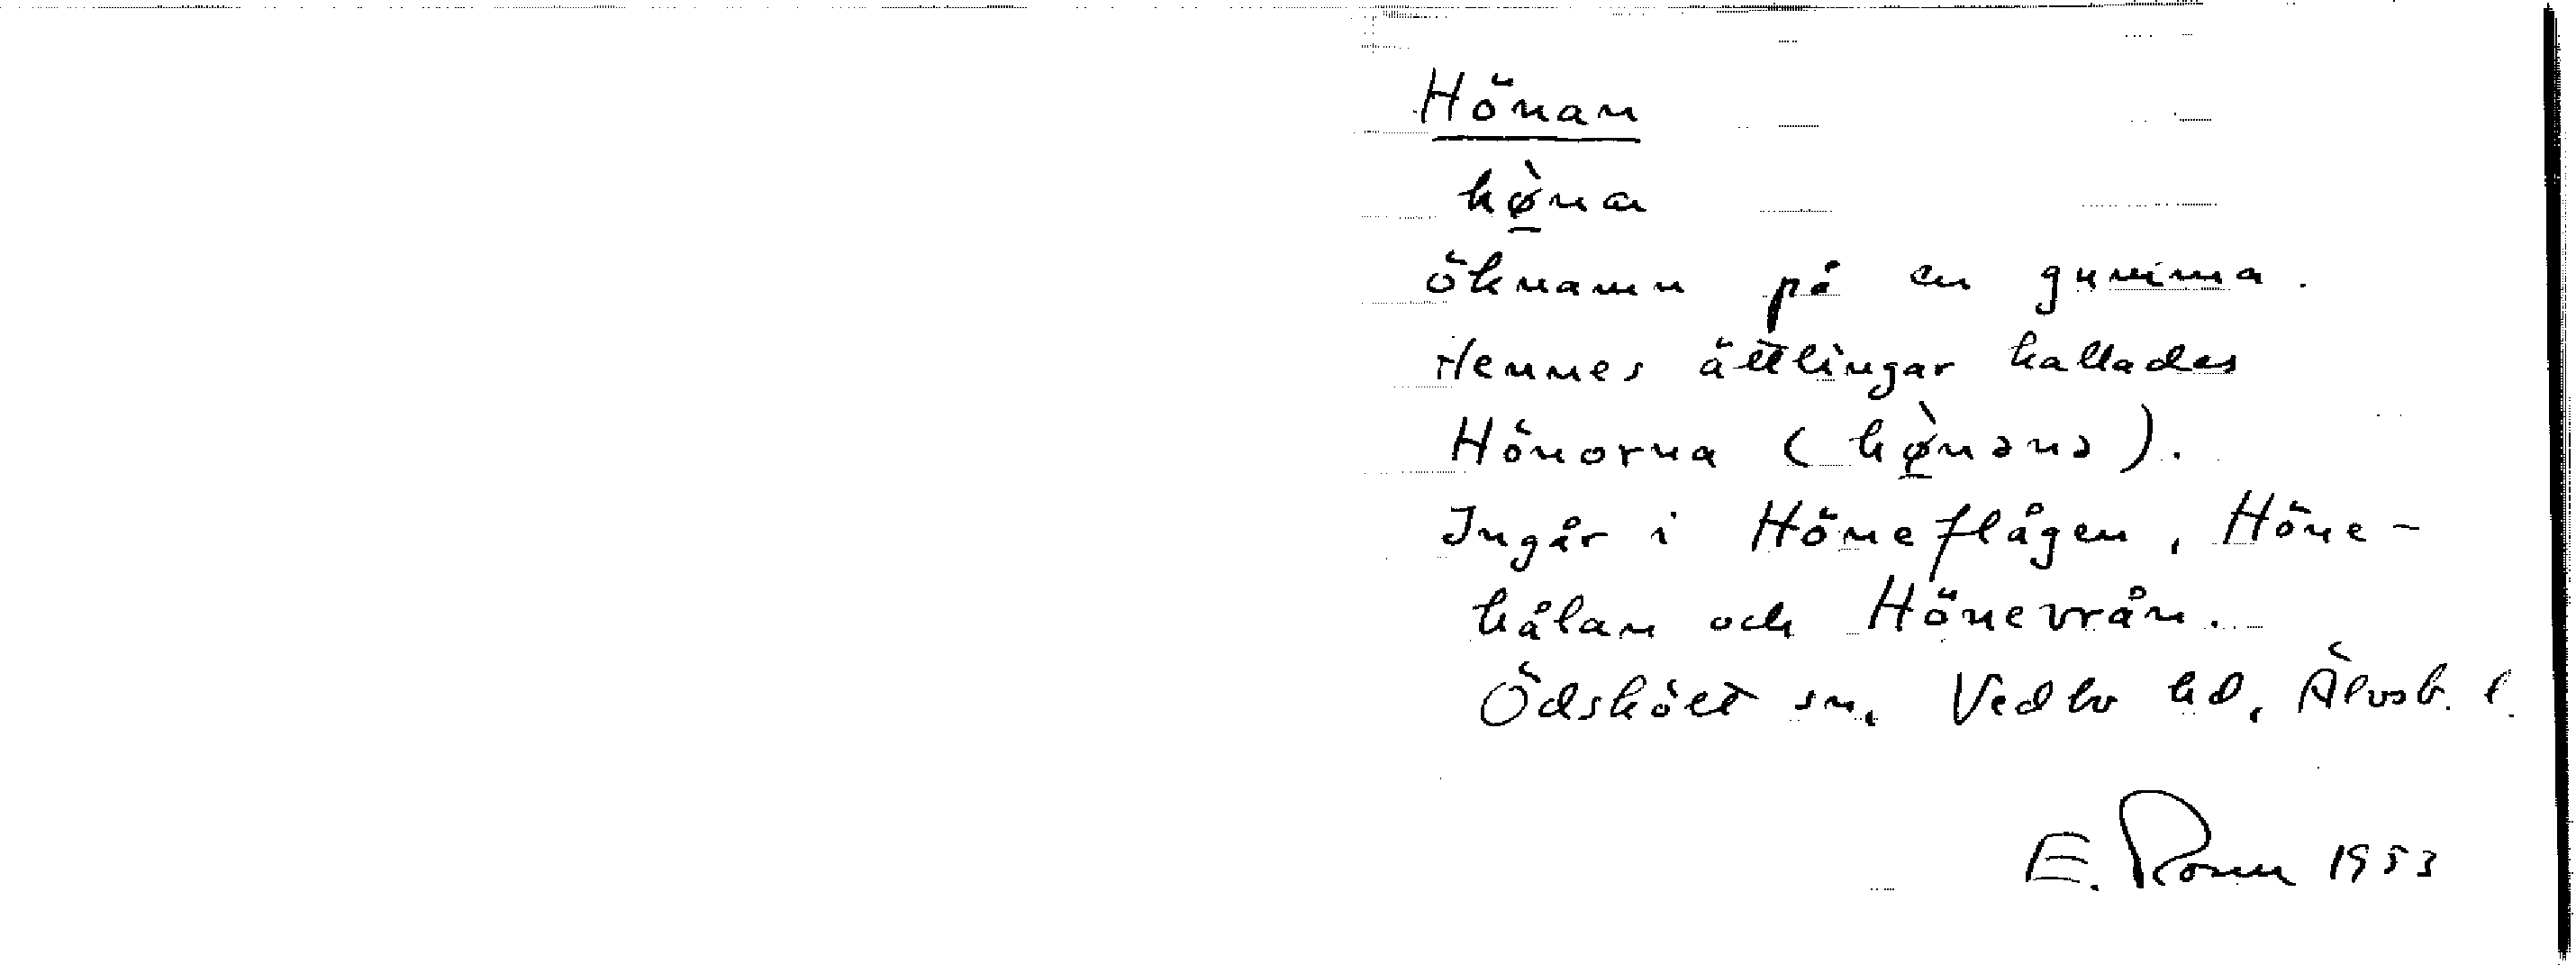 Hönan
hø̀na
öknamn på en gumma.
Hennes ättlingar kallades
Hönorna (hø̀nənə).
Ingår i Höneflågen, Höne-
hålan och Hönevrån.
Ödskölt sn, Vedbo hd, Älvsb. l.
E. 1953